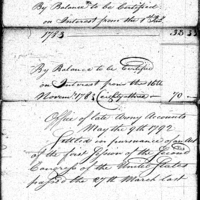 By Balance to be Certified
on Interest from the 1st
1783 33 33
By Balance to be Certified
on Interest from the 16th
Novem 1783 eighty three 70
Office of late Army Accounts
May the 9th 1792
Settled in pursuance of an Act
of the first Session of the Second
Congress of the United States
passed the 27th March last